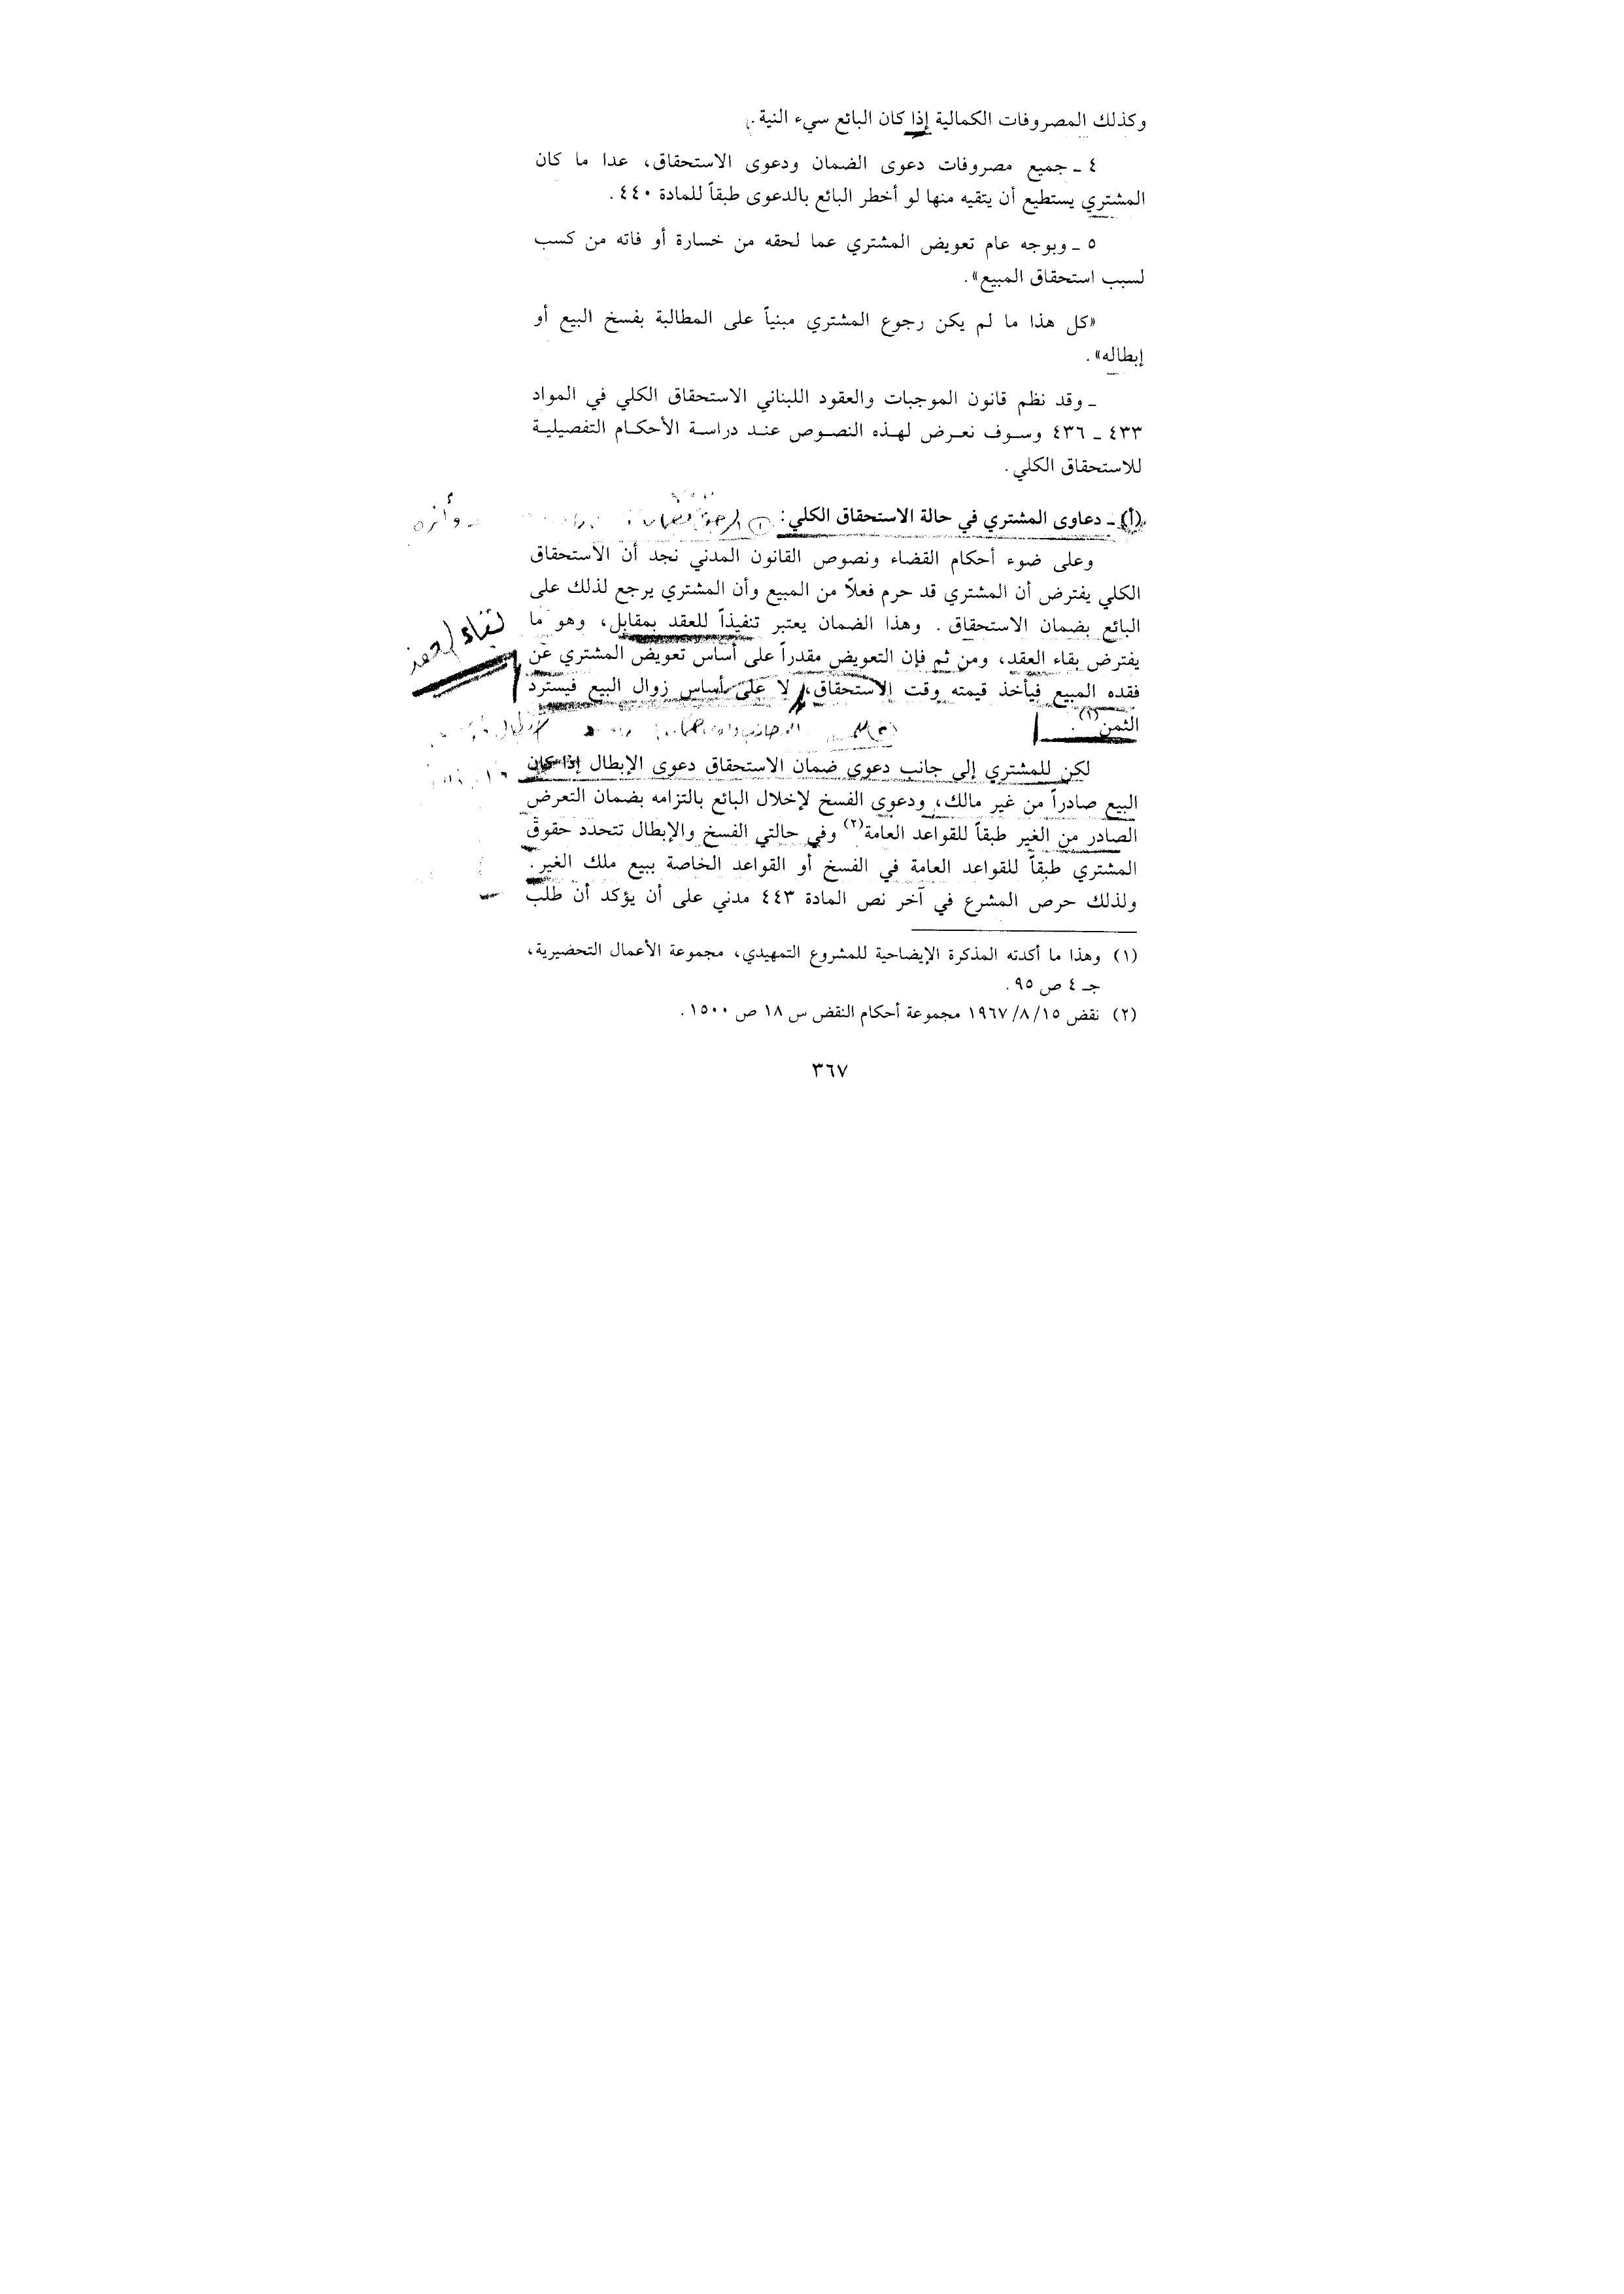 وكذلك المصروفات الكمالية إذا كان البائع سيء النية.
٤ ـ جميع مصروفات دعوى الضمان ودعوى الاستحقاق، عدا ما كان
المشتري يستطيع أن يتقيه منها لو أخطر البائع بالدعوى طبقاً للمادة ٤٤٠.
٥ ـ وبوجه عام تعويض المشتري عما لحقه من خسارة أو فاته من كسب
لسبب استحقاق المبيع».
«كل هذا ما لم يكن رجوع المشتري مبنياً على المطالبة بفسخ البيع أو
إبطاله».
ـ وقد نظم قانون الموجبات والعقود اللبناني الاستحقاق الكلي في المواد
٤٣٣ ـ ٤٣٦ وسوف نعرض لهذه النصوص عند دراسة الأحكام التفصيلية
للاستحقاق الكلي.
(أ) ـ دعاوى المشتري في حالة الاستحقاق الكلي:
وعلى ضوء أحكام القضاء ونصوص القانون المدني نجد أن الاستحقاق
الكلي يفترض أن المشتري قد حرم فعلاً من المبيع وأن المشتري يرجع لذلك على
البائع بضمان الاستحقاق. وهذا الضمان يعتبر تنفيذاً للعقد بمقابل، وهو ما
يفترض بقاء العقد، ومن ثم فإن التعويض مقدراً على أساس تعويض المشتري عن
فقده المبيع فيأخذ قيمته وقت الاستحقاق، لا على أساس زوال البيع فيسترد
الثمن(١).
لكن للمشتري إلى جانب دعوى ضمان الاستحقاق دعوى الإبطال إذا كان
البيع صادراً من غير مالك، ودعوى الفسخ لإخلال البائع بالتزامه بضمان التعرض
الصادر من الغير طبقاً للقواعد العامة(٢) وفي حالتي الفسخ والإبطال تتحدد حقوق
المشتري طبقاً للقواعد العامة في الفسخ أو القواعد الخاصة ببيع ملك الغير.
ولذلك حرص المشرع في آخر نص المادة ٤٤٣ مدني على أن يؤكد أن طلب
(١) وهذا ما أكدته المذكرة الإيضاحية للمشروع التمهيدي، مجموعة الأعمال التحضيرية،
جـ ٤ ص ٩٥.
(٢) نقض ١٩٦٧/٨/١٥ مجموعة أحكام النقض س ١٨ ص ١٥٠٠.
٣٦٧